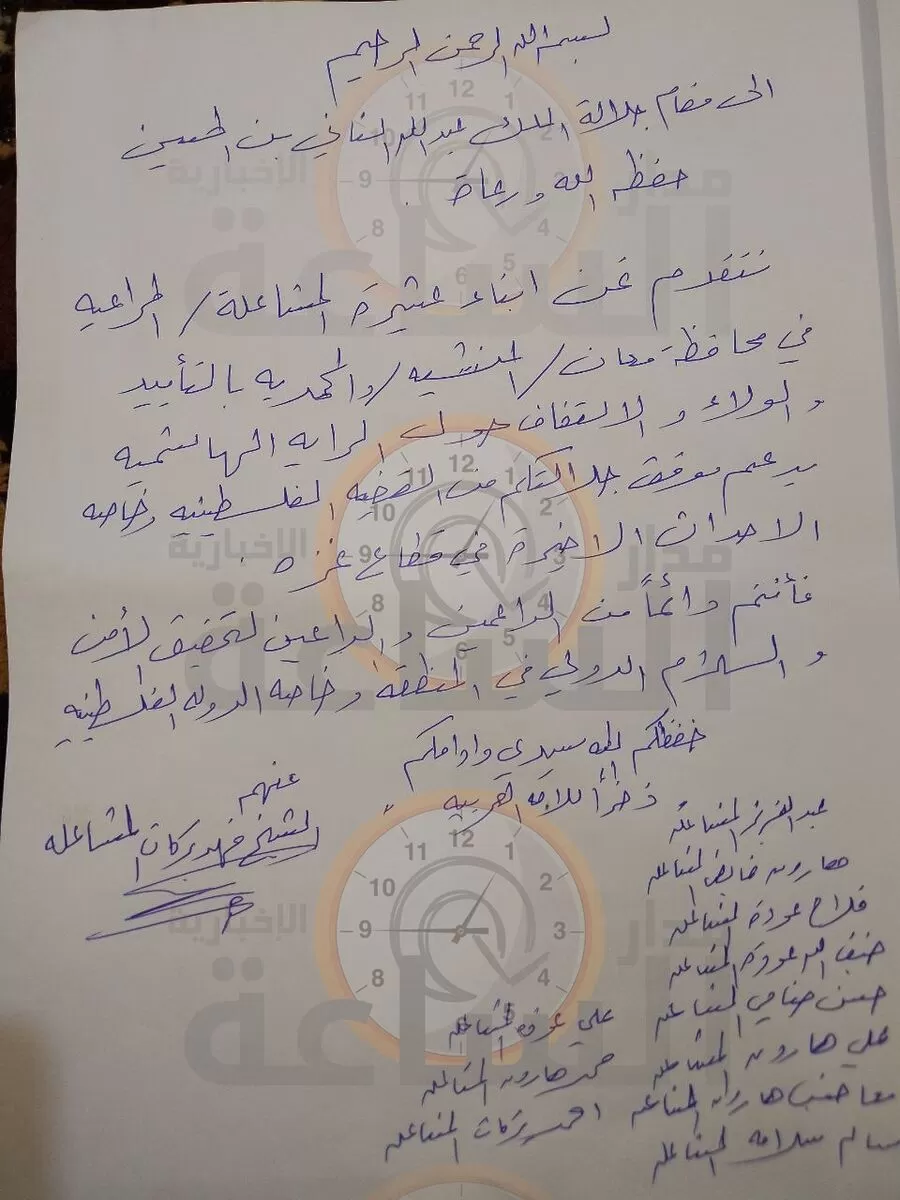 بسم الله الرحمن الرحيم
الى مقام جلالة الملك عبدالله الثاني بن الحسين
حفظه الله ورعاه
نتقدم نحن ابناء عشيرة المشاعلة / المراعيه
في محافظة معان / المنشيه / والمحمديه بالتأييد
والولاء والالتفاف حول الرايه الهاشميه
بدعم موقف جلالتكم من القضيه الفلسطينيه وخاصه
الاحداث الاخيرة في قطاع غزه .
فأنتم دائماً من الداعمين والراعين لتحقيق الأمن
والسلام الدولي في المنطقه وخاصه الدوله الفلسطينيه
حفظكم الله سيدي وادامكم
ذخراً للامه العربيه
عنهم
الشيخ فهد بركات المشاعله
عبدالعزيز المشاعله
هارون فايض المشاعله
فلاح عودة المشاعله
ضيف الله عودة المشاعله
حسن المشاعله
علي هارون المشاعله
هارون المشاعله
سالم سلامه المشاعله
علي عوده المشاعله
حمد هارون المشاعله
احمد بركات المشاعله
مدار
الساعة
الإخبارية